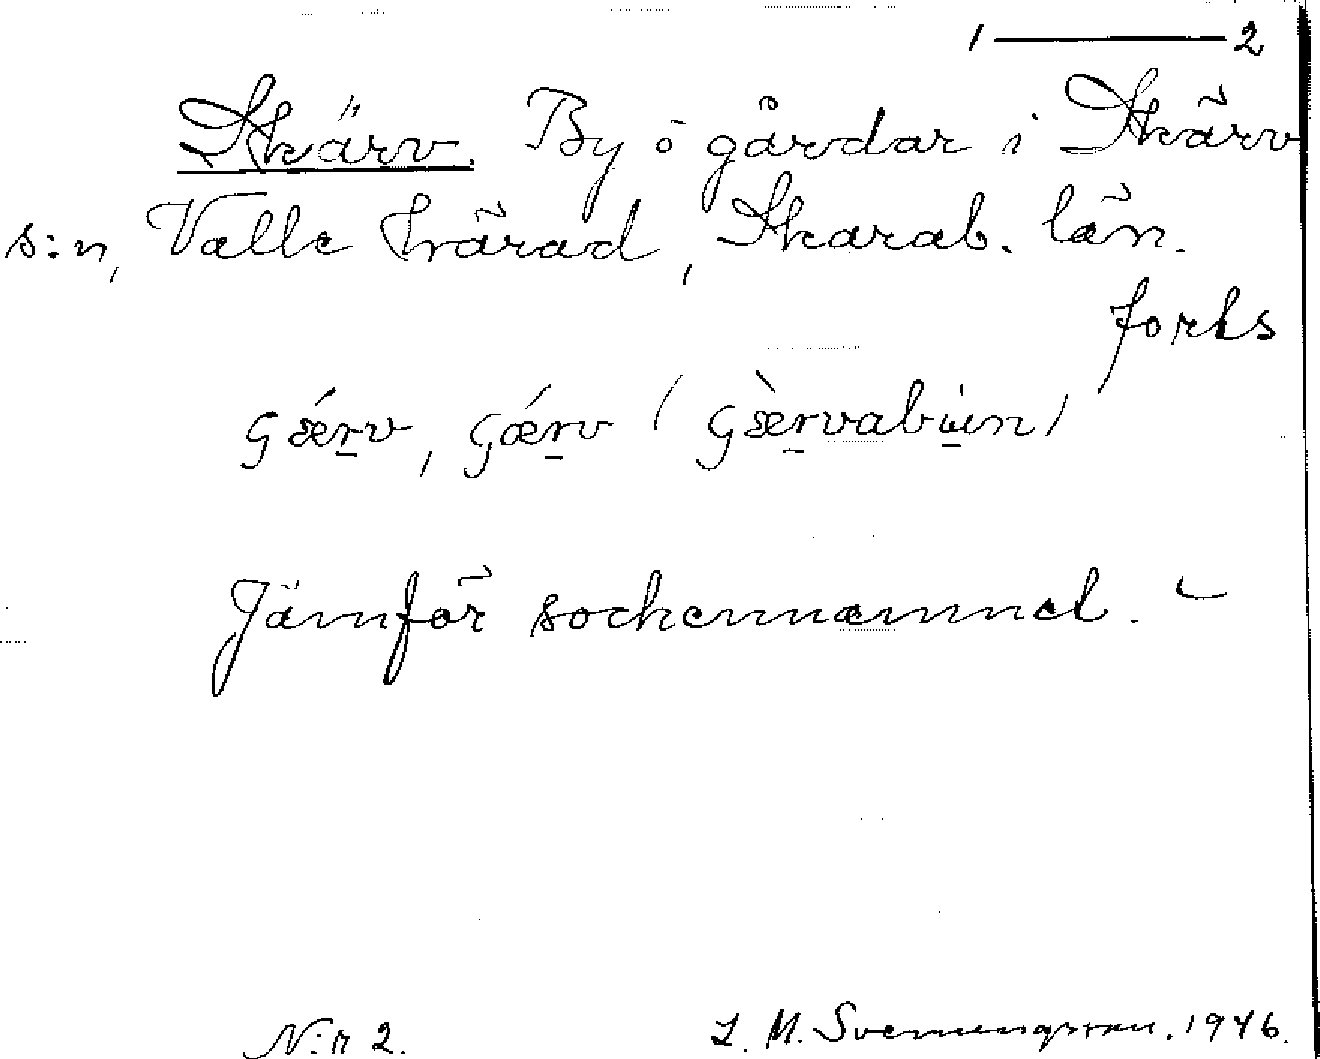 1 — 2
Skärv. By o gårdar i Skärv
s:n, Valle härad, Skarab. län.
forts
çǽrv, çǽrv (çæ̀rvabún)
Jämför sockennamnet. –
N:r 2. L. M. Svenungsson. 1946.